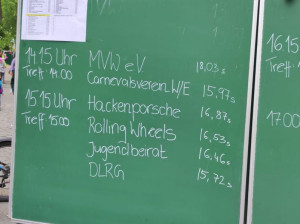 14.15 Uhr MVW eV 18,03s
Treff 14.00 Carnevalsverein W/E 15,97s
15.15 Uhr Hackenporsche 16,87s
Treff 15.00 Rolling Wheels 16,53s
Jugendbeirat 16,46s
DLRG 15,72s
16.15
Treff
17.00